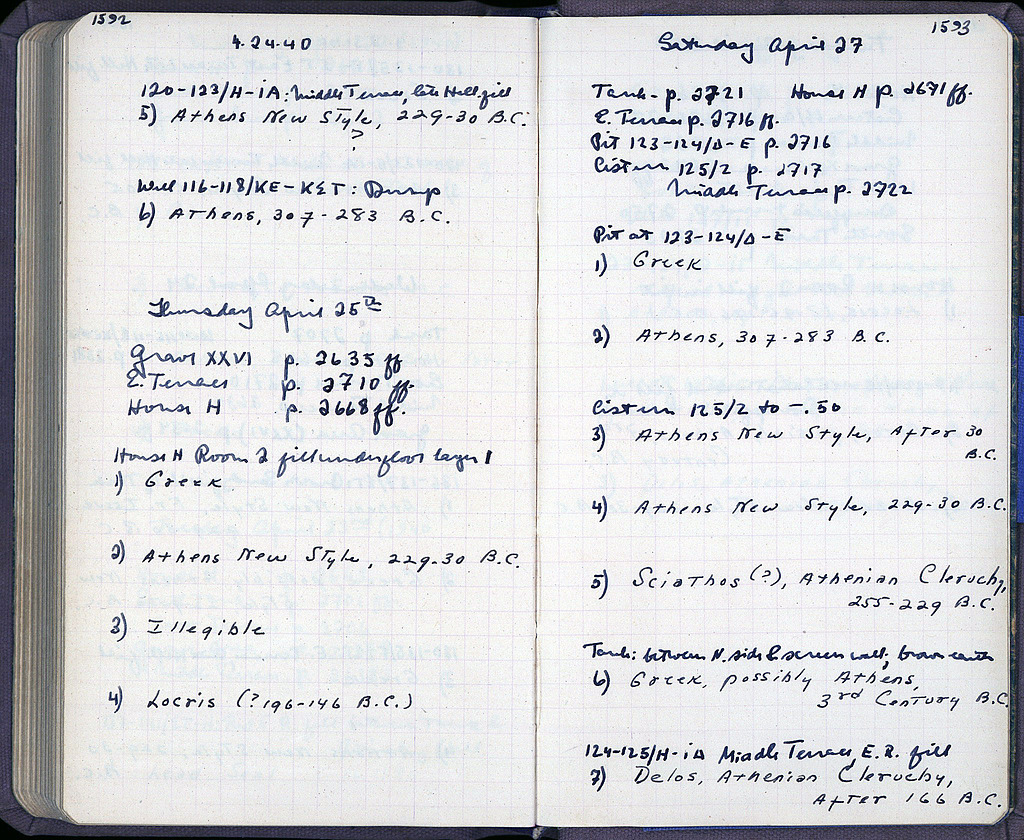 1592
4-24-40
120-123/H-ΙΑ: Middle Terrace, late Hell. fill
5) Athens New Style, 229-30 B.C.
?
Well 116-118/ΚΕ-ΚΣΤ: Dump
6) Athens, 307-283 B.C.
Thursday April 25th
Grave XXVI p. 2635 ff
E. Terrace p. 2710 ff.
House H p. 2668 ff.
House H Room 2 fill under floor layer 1
1) Greek
2) Athens New Style, 229-30 B.C.
3) Illegible
4) Locris (?196-146 B.C.)
1593
Saturday April 27
Tank - p. 2721 House H p. 2671 ff.
E. Terrace p. 2716 ff.
Pit 123-124/Δ-E p. 2716
Cistern 125/2 p. 2717
Middle Terrace p. 2722
Pit at 123-124/Δ-E
1) Greek
2) Athens, 307-283 B.C.
Cistern 125/2 to -.50
3) Athens New Style, After 30
B.C.
4) Athens New Style, 229-30 B.C.
5) Sciathos (?), Athenian Cleruchy,
255-229 B.C.
Tank: between N. side & screen wall, brown earth
6) Greek, possibly Athens,
3rd Century B.C.
124-125/H-ΙΔ Middle Terrace, E.R. fill
7) Delos, Athenian Cleruchy,
After 166 B.C.